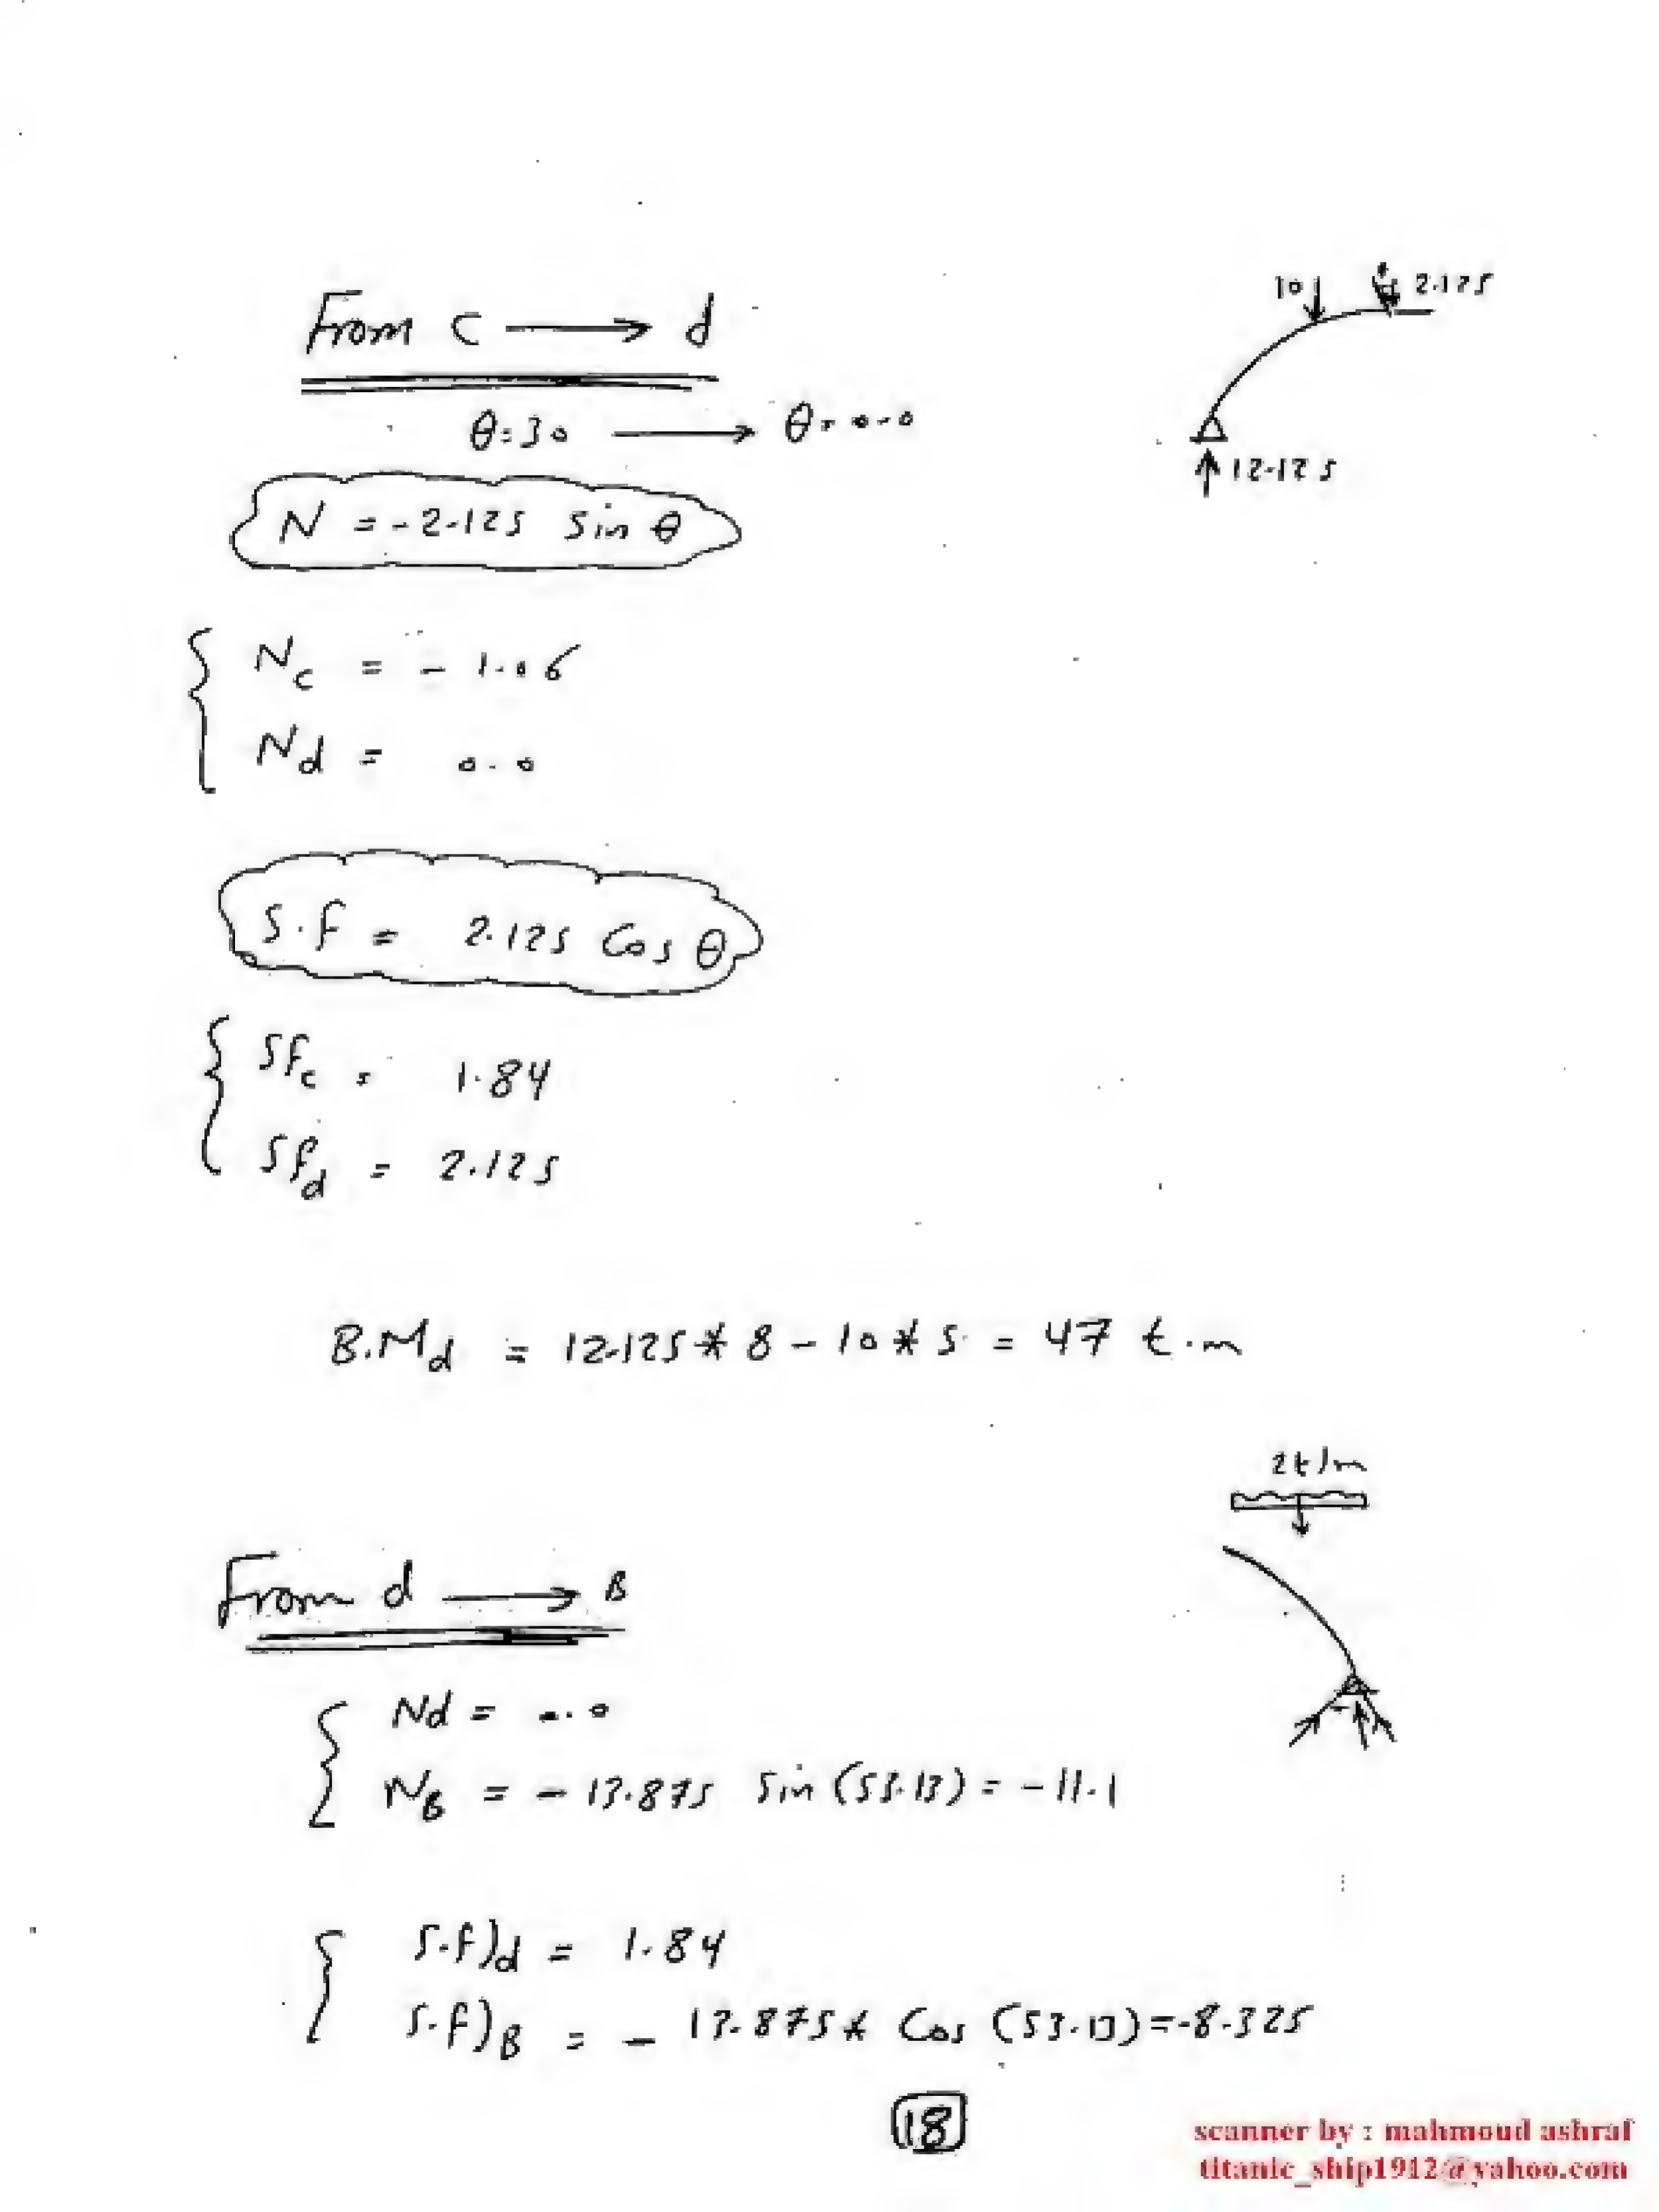 From c → d
10 2.125
θ=30 → θ=0.0
12.125
N = -2.125 Sin θ
Nc = - 1.06
Nd = 0.0
S.F = 2.125 Cos θ
SFc = 1.84
SFd = 2.125
B.Md = 12.125 * 8 - 10 * 5 = 47 t.m
2t/m
From d → B
Nd = 0.0
NB = - 13.875 Sin (53.13) = -11.1
S.F)d = 1.84
S.F)B = - 13.875 * Cos (53.13) = -8.325
18
scanner by : mahmoud ashraf
titanic_ship1912@yahoo.com